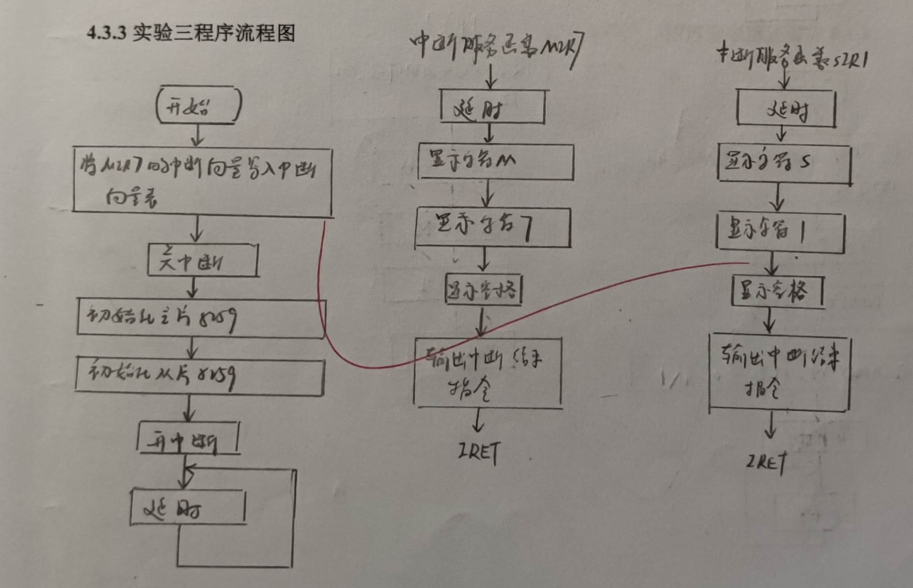 4.3.3 实验三程序流程图
开始
将MIR7的中断向量写入中断
向量表
关中断
初始化主片8259
初始化从片8259
开中断
延时
中断服务函数MIR7
延时
显示字符M
显示字符7
显示空格
输出中断结束
指令
IRET
中断服务函数SIR1
延时
显示字符S
显示字符1
显示空格
输出中断结束
指令
IRET